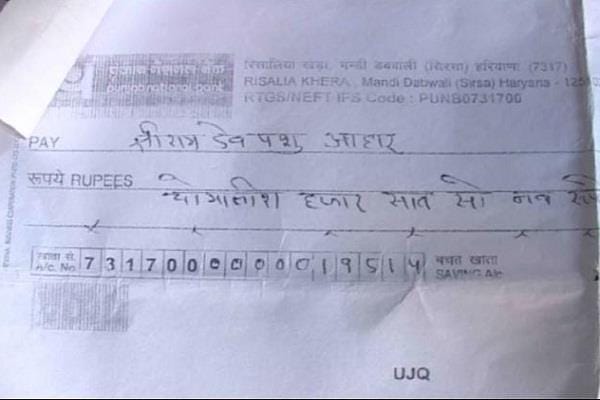 पंजाब नैशनल बैंक
punjab national bank
रिसालिया खेड़ा, मण्डी डबवाली (सिरसा) हरियाणा (7317)
RISALIA KHERA, Mandi Dabwali (Sirsa) Haryana - 125
RTGS/NEFT IFS Code : PUNB0731700
PAY श्री राम देव पशु आहार
रूपये RUPEES हजार सात सो नव
खाता सं. बचत खाता
A/c. No. 7317000000019514 SAVING A/c
UJQ